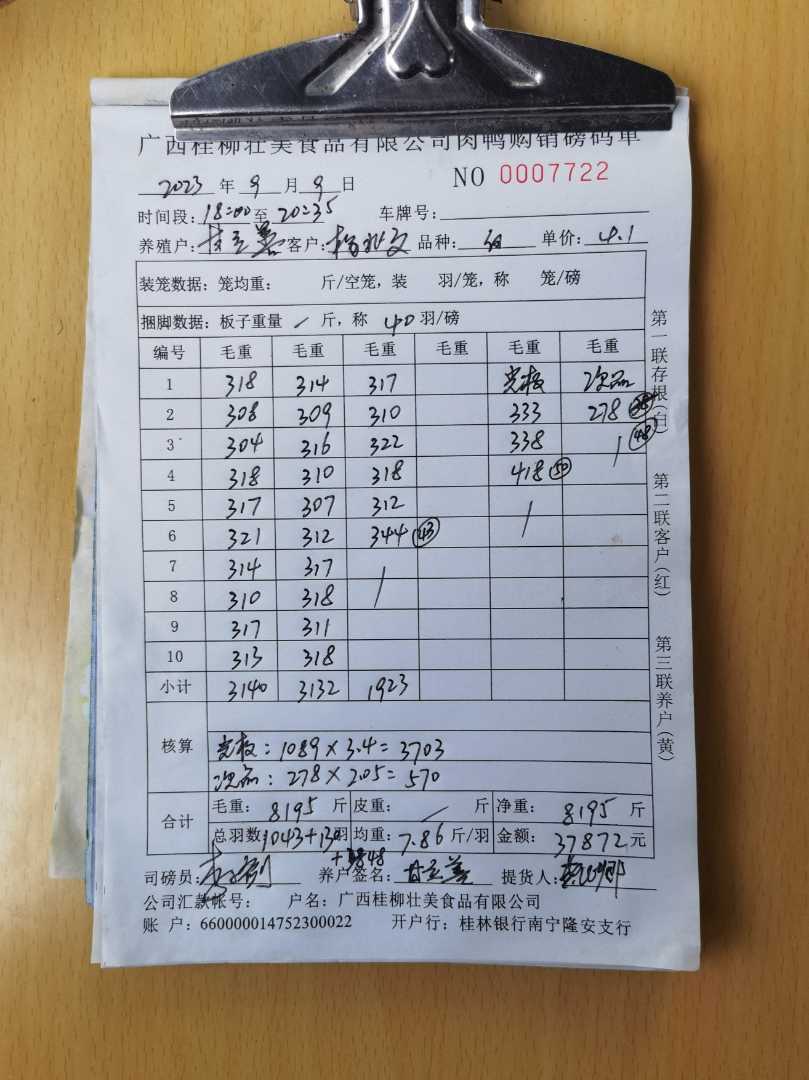 广西桂柳壮美食品有限公司肉鸭购销磅码单
2023 年 9 月 9 日 NO 0007722
时间段: 18:00 至 20:35 车牌号:
养殖户: 客户: 品种: 单价: 4.1
装笼数据: 笼均重: 斤/空笼, 装 羽/笼, 称 笼/磅
捆脚数据: 板子重量 / 斤, 称 40 羽/磅
编号 毛重 毛重 毛重 毛重 毛重 毛重
1 318 314 317 光板 次品
2 308 309 310 333 278
3 304 316 322 338 / 48
4 318 310 318 418 50
5 317 307 312 /
6 321 312 344 43
7 314 317 /
8 310 318
9 317 311
10 313 318
小计 3140 3132 1923
核算
光板: 1089 × 3.4 = 3703
次品: 278 × 2.05 = 570
合计
毛重: 8195 斤 皮重: / 斤 净重: 8195 斤
总羽数 1043+130 羽 均重: 7.86 斤/羽 金额: 37872 元
+48
司磅员: 养户签名: 提货人:
公司汇款帐号: 户名: 广西桂柳壮美食品有限公司
账 户: 660000014752300022 开户行: 桂林银行南宁隆安支行
第一联存根(白)
第二联客户(红)
第三联养户(黄)